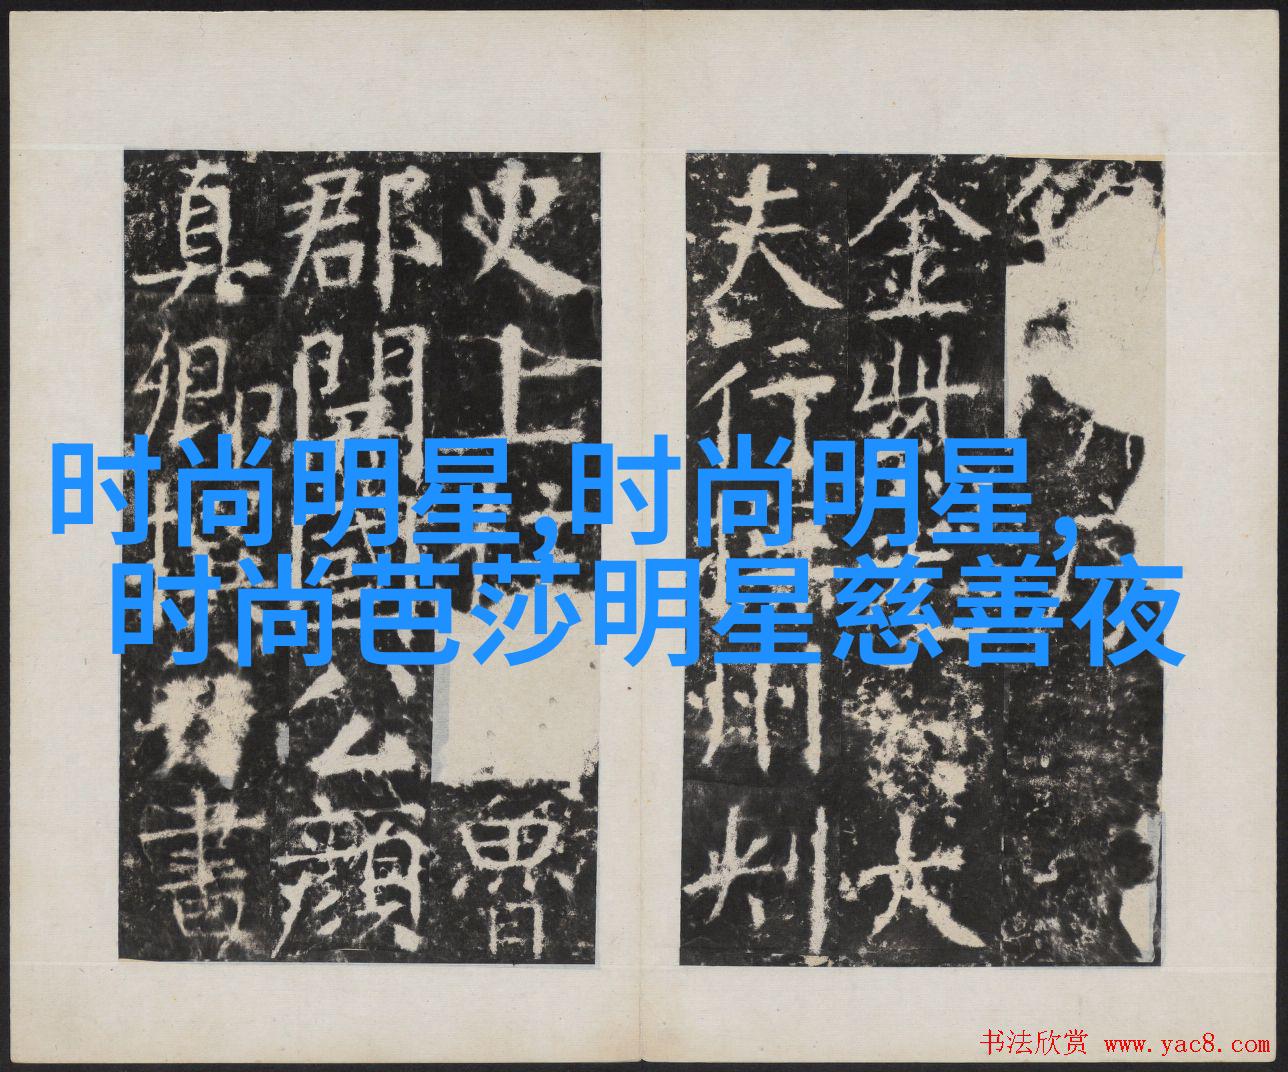 金紫大
夫行撫州刺
史上魯
郡開國公顏
真卿撰書
时尚明星,时尚明星,
时尚芭莎明星慈善夜
书法欣赏 www.yac8.com